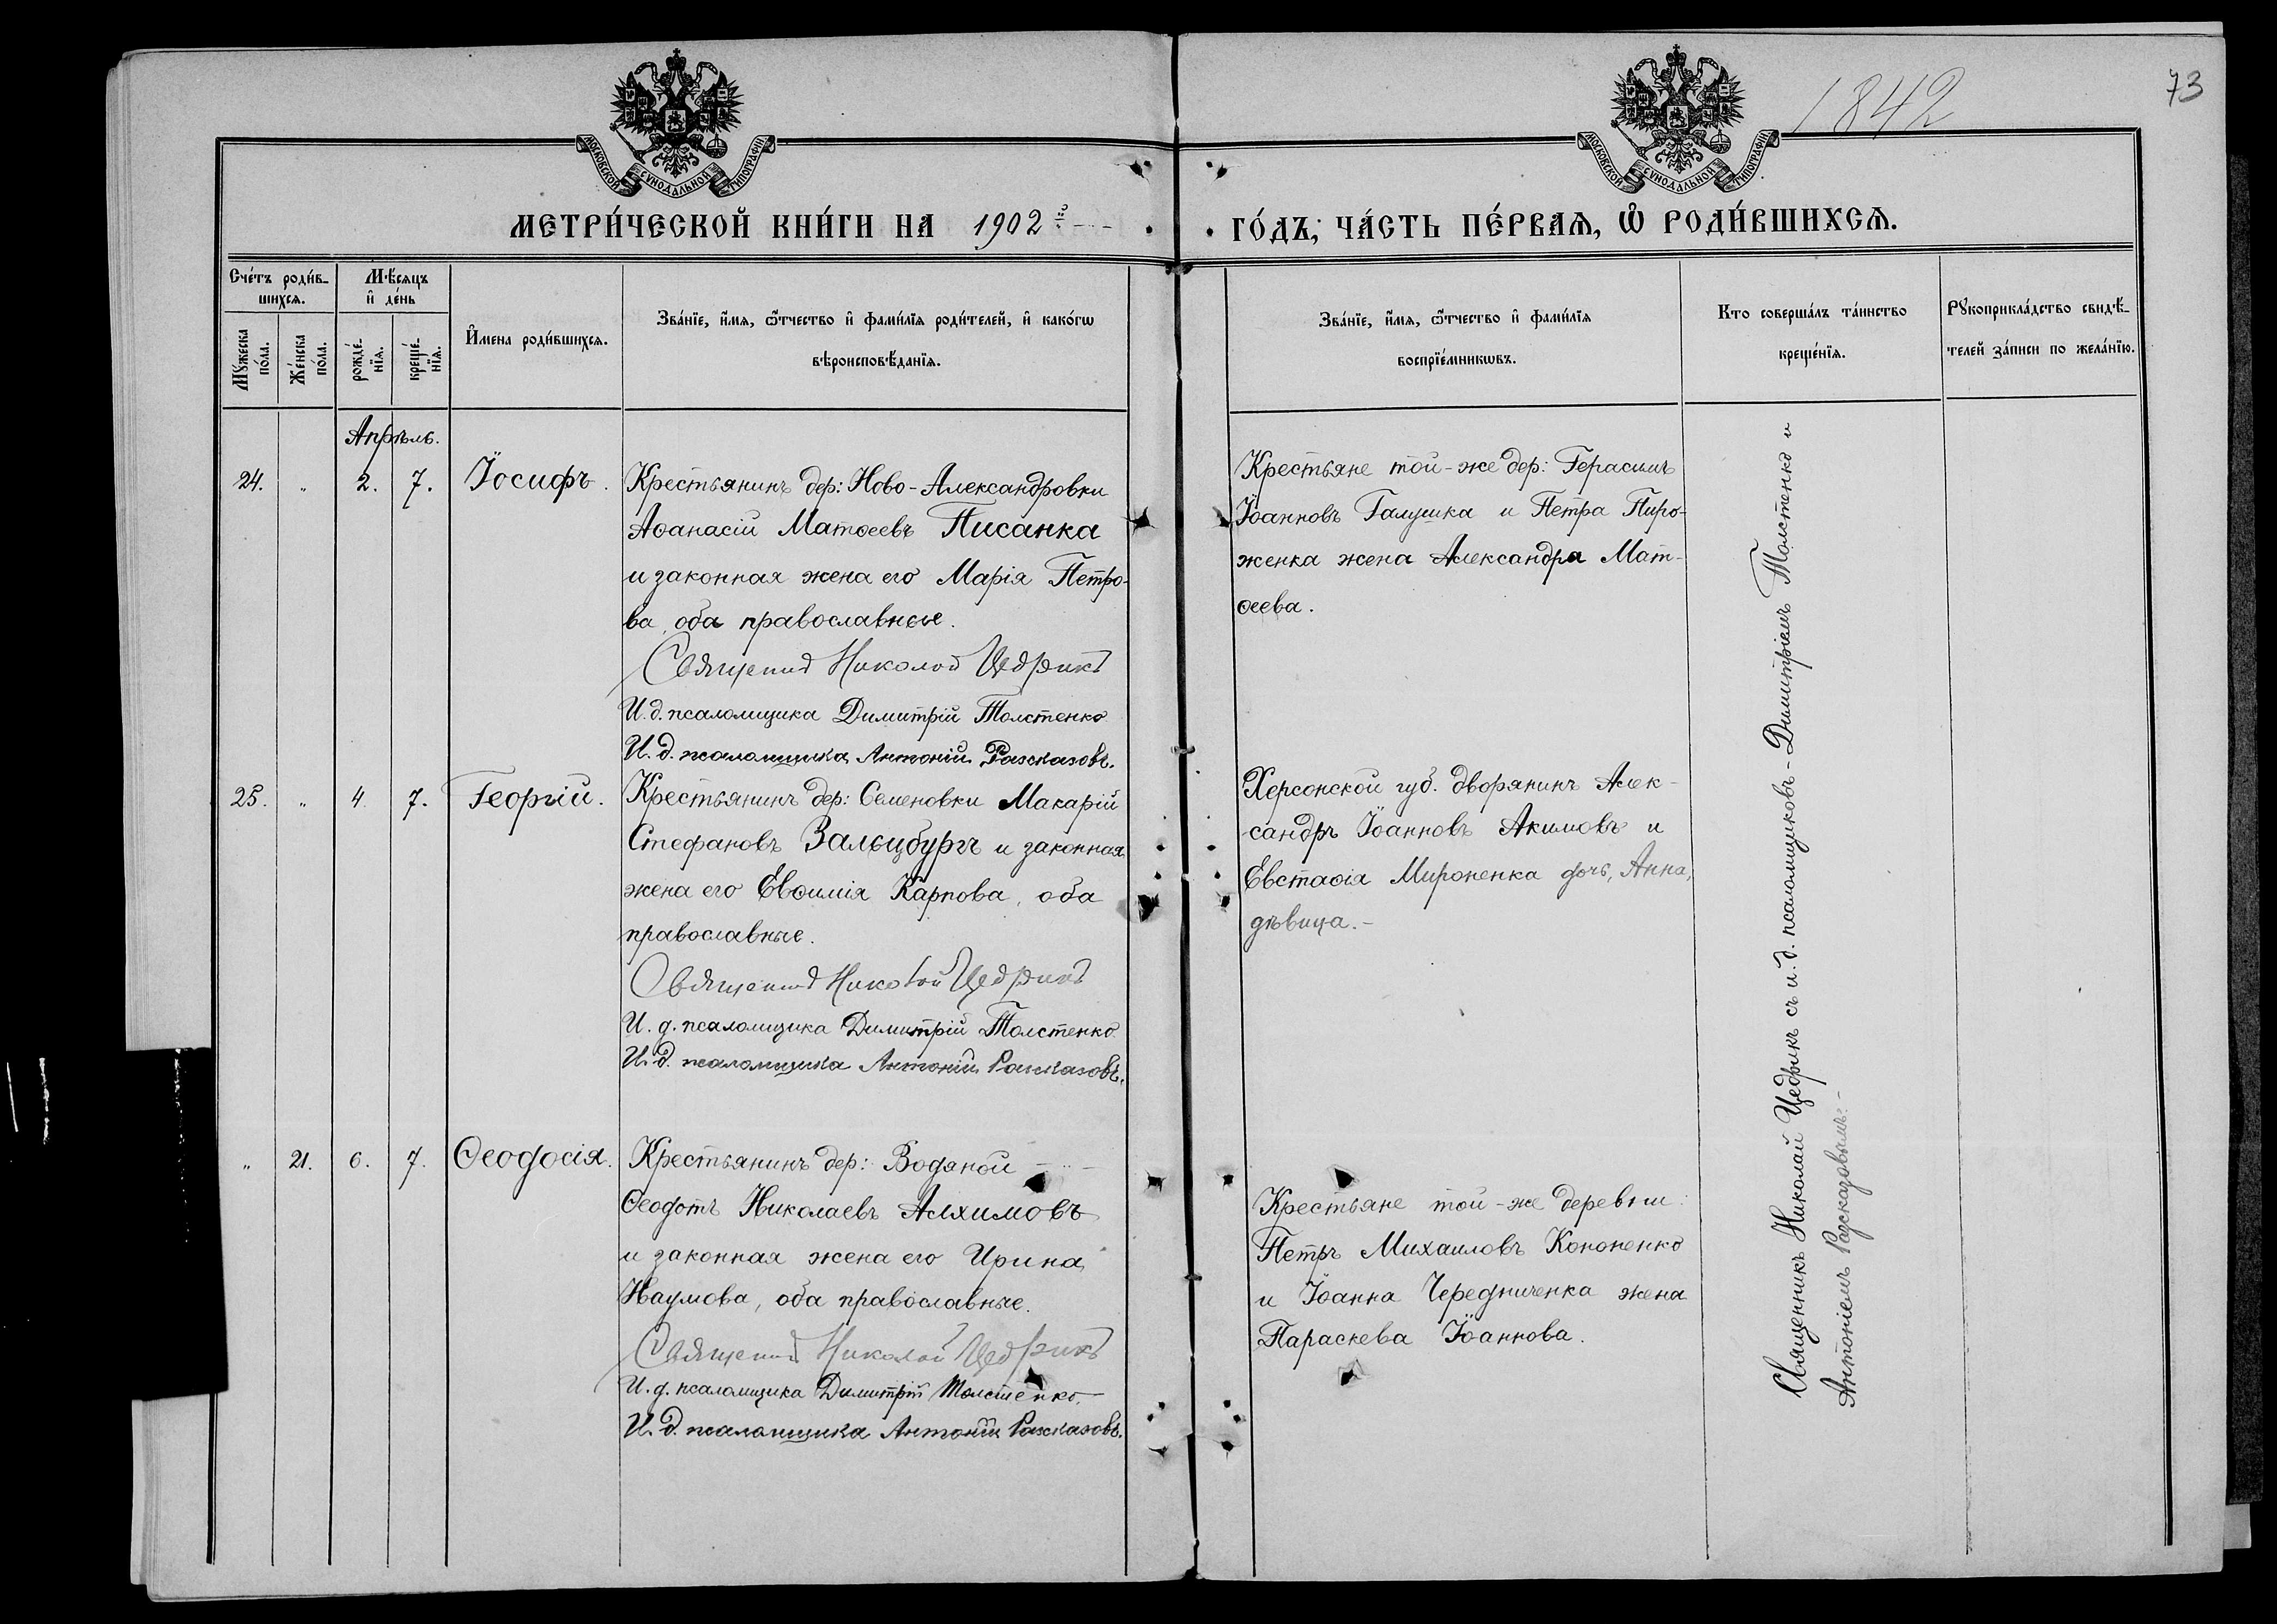 1842
73
МОСКОВСКОЙ СѴНОДАЛЬНОЙ ТИПОГРАФІИ.
МОСКОВСКОЙ СѴНОДАЛЬНОЙ ТИПОГРАФІИ.
МЕТРИ́ЧЕСКОЙ КНИ́ГИ НА 1902й
ГО́ДЪ, ЧА́СТЬ ПЕ́РВАѦ, Ѽ РОДИ́ВШИХСѦ.
Сче́тъ роди́в-
шихсѧ.
Мѣ́сяцъ
и̂ де́нь
Мꙋ́жеска по́ла.
Же́нска по́ла.
рожде́-нїѧ.
креще́-нїѧ.
И̂мена роди́вшихсѧ.
Зва́нїе, и̂мѧ, ѿтчество и̂ фами́лїѧ роди́телей, и̂ како́гѡ
вѣроисповѣ́данїѧ.
Зва́нїе, и̂мѧ, ѿтчество и̂ фами́лїѧ
воспрїе́мникѡвъ.
Кто соверша́лъ та́инство
креще́нїѧ.
Рꙋкоприкла́дство свидѣ́-
телей за́писи по жела́нїю.
Апрѣль.
24. " 2. 7. Іосифъ.
Крестьянинъ дер: Ново-Александровки
Аѳанасій Матѳеевъ Писанка
и законная жена его Марія Петро-
ва, оба православные.
Священникъ Николай Цедрикъ
И. д. псаломщика Димитрій Толстенко
И. д. псаломщика Антоній Разсказовъ.
Крестьяне той-же дер: Герасимъ
Іоанновъ Галушка и Петра Пиро-
женка жена Александра Мат-
ѳеева.
25. " 4. 7. Георгій.
Крестьянинъ дер: Семеновки Макарій
Стефановъ Залецбургъ и законная
жена его Евѳимія Карпова, оба
православные.
Священникъ Николай Цедрикъ
И. д. псаломщика Димитрій Толстенко
И. д. псаломщика Антоній Разсказовъ.
Херсонской губ. дворянинъ Алек-
сандръ Іоанновъ Акимовъ и
Евстаѳія Мироненка дочь, Анна,
дѣвица.-
" 21. 6. 7. Ѳеодосія.
Крестьянинъ дер: Водяной
Ѳеодотъ Николаевъ Алхимовъ
и законная жена его Ирина
Наумова, оба православные.
Священникъ Николай Цедрикъ
И. д. псаломщика Димитрій Толстенко.
И. д. псаломщика Антоній Разсказовъ.
Крестьяне той-же деревни:
Петръ Михаиловъ Кононенко
и Іоанна Чередниченка жена
Параскева Іоаннова.
Священникъ Николай Цедрикъ съ и. д. псаломщиковъ - Димитріемъ Толстенко и
Антоніемъ Разсказовымъ.-